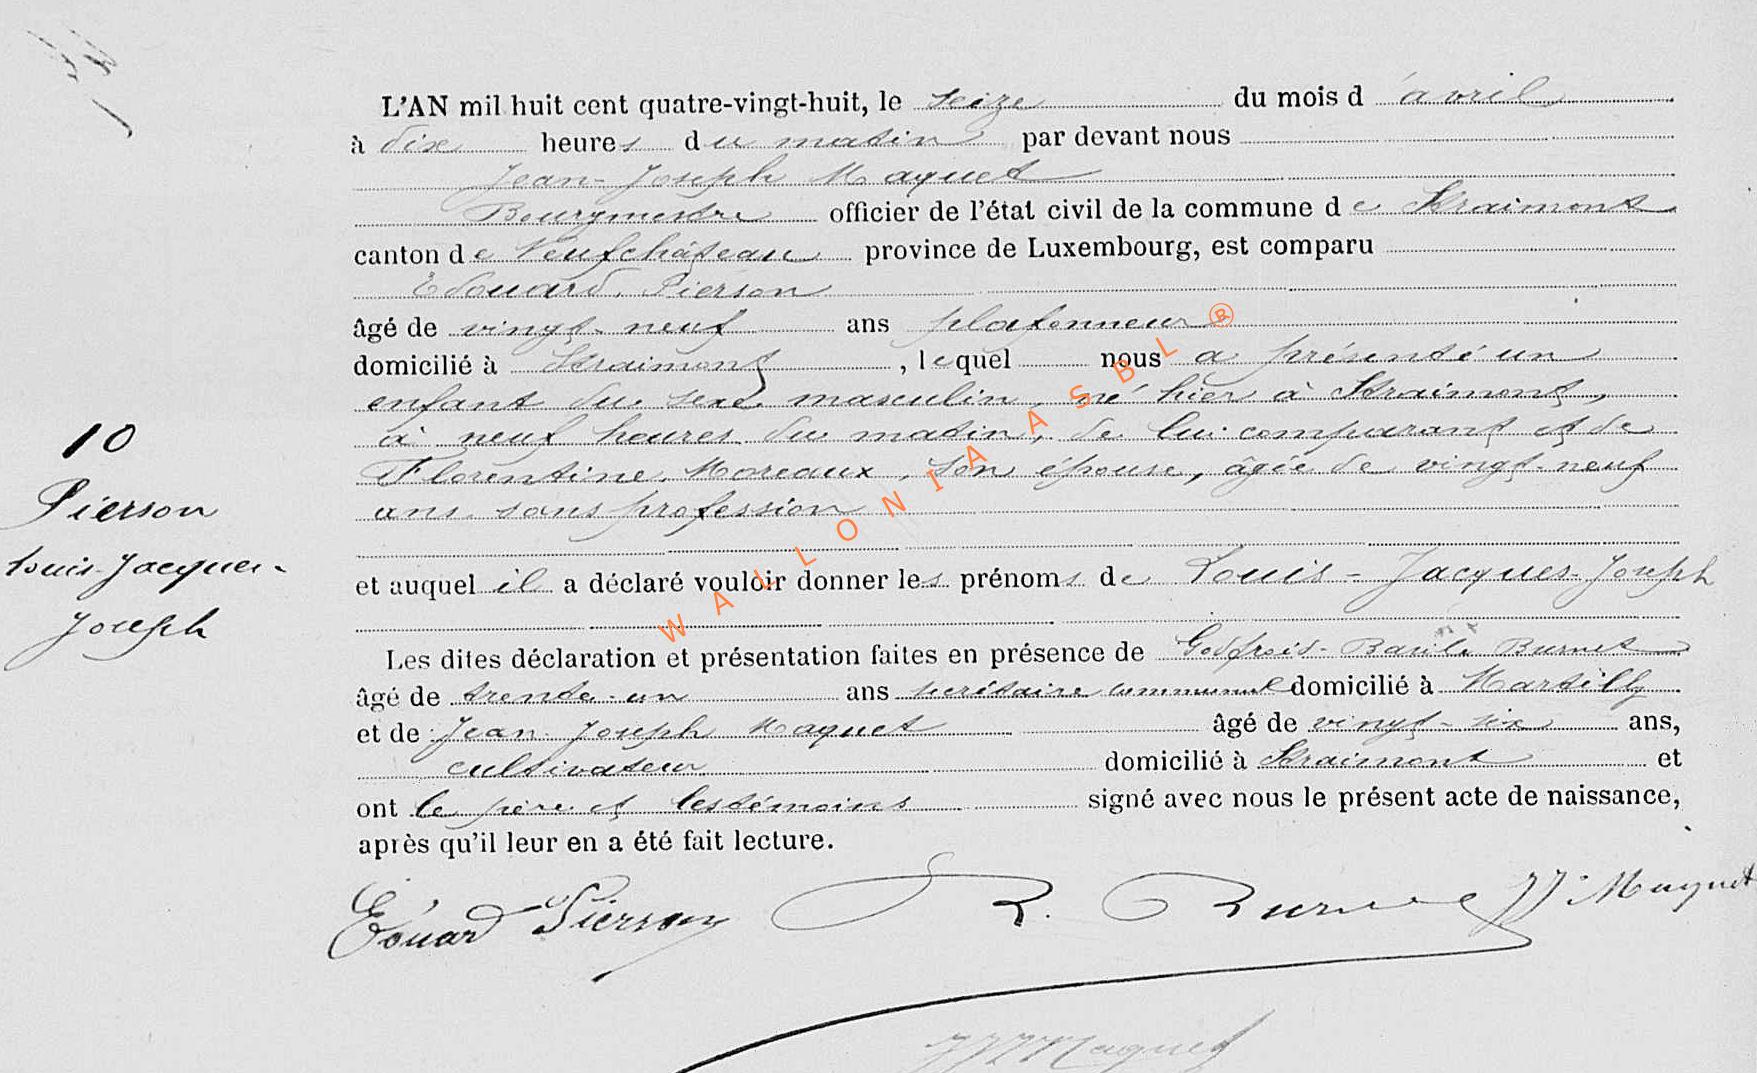 L'AN mil huit cent quatre-vingt-huit, le seize du mois d'avril
à dix heures du matin par devant nous
Jean-Joseph Maquet
Bourgmestre officier de l'état civil de la commune de Straimont
canton de Neufchâteau province de Luxembourg, est comparu
Edouard Pierson
âgé de vingt-neuf ans plafonneur
domicilié à Straimont, lequel nous a présenté un
enfant du sexe masculin, né hier à Straimont,
à neuf heures du matin, de lui comparant et de
Florentine Moreaux, son épouse, âgée de vingt-neuf
ans sans profession
10
Pierson
Louis-Jacques-
Joseph
et auquel il a déclaré vouloir donner les prénoms de Louis-Jacques-Joseph
Les dites déclaration et présentation faites en présence de Godfroid-Basile Burnet
âgé de trente-un ans secrétaire communal domicilié à Martilly
et de Jean Joseph Maquet âgé de vingt-six ans,
cultivateur domicilié à Straimont et
ont le père et les témoins signé avec nous le présent acte de naissance,
après qu'il leur en a été fait lecture.
Edouard Pierson B. Burnet JJ Maquet
JJ Maquet
WALLONIA ASBL ®